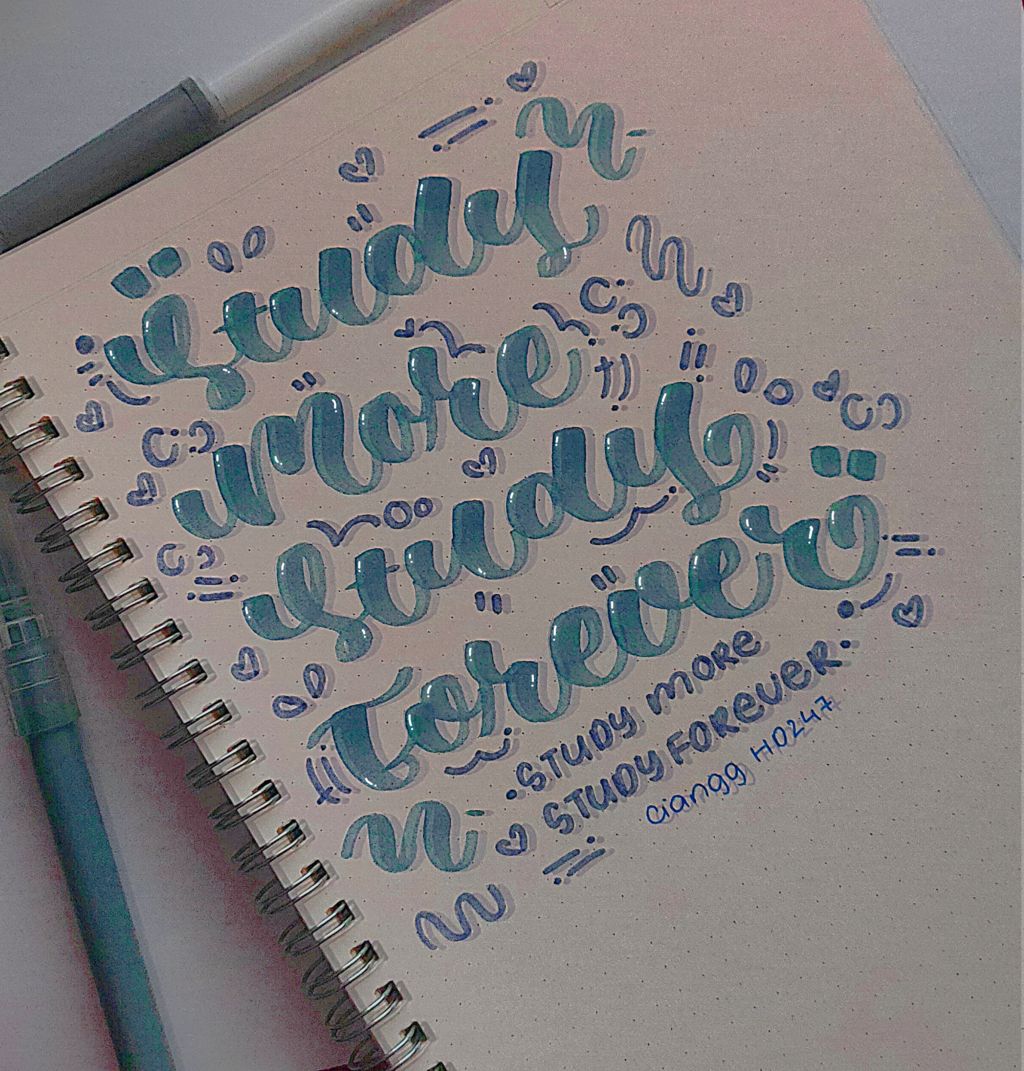 Study
more
Study
forever
STUDY MORE
STUDY FOREVER.
ciangg HD247